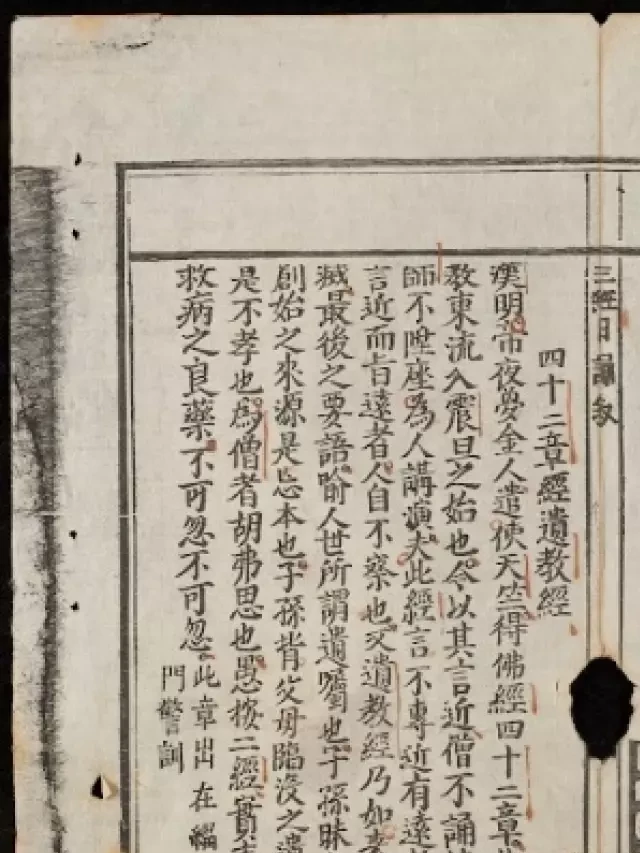 三經日誦敘
四十二章經遺教經
漢明帝夜夢金人遣使天竺得佛經四十二章
教東流入震旦之始也今以其言近僧不誦
師不陞座為人講演夫此經言不專近有遠
言近而旨遠者人自不察也又遺教經乃如來
滅最後之要語喻人世所謂遺囑也子孫昧
創始之來源是忘本也子孫背父母臨沒之遺
是不孝也為僧者胡弗思也愚按二經實
救病之良藥不可忽不可忽
此章出在緇
門警訓